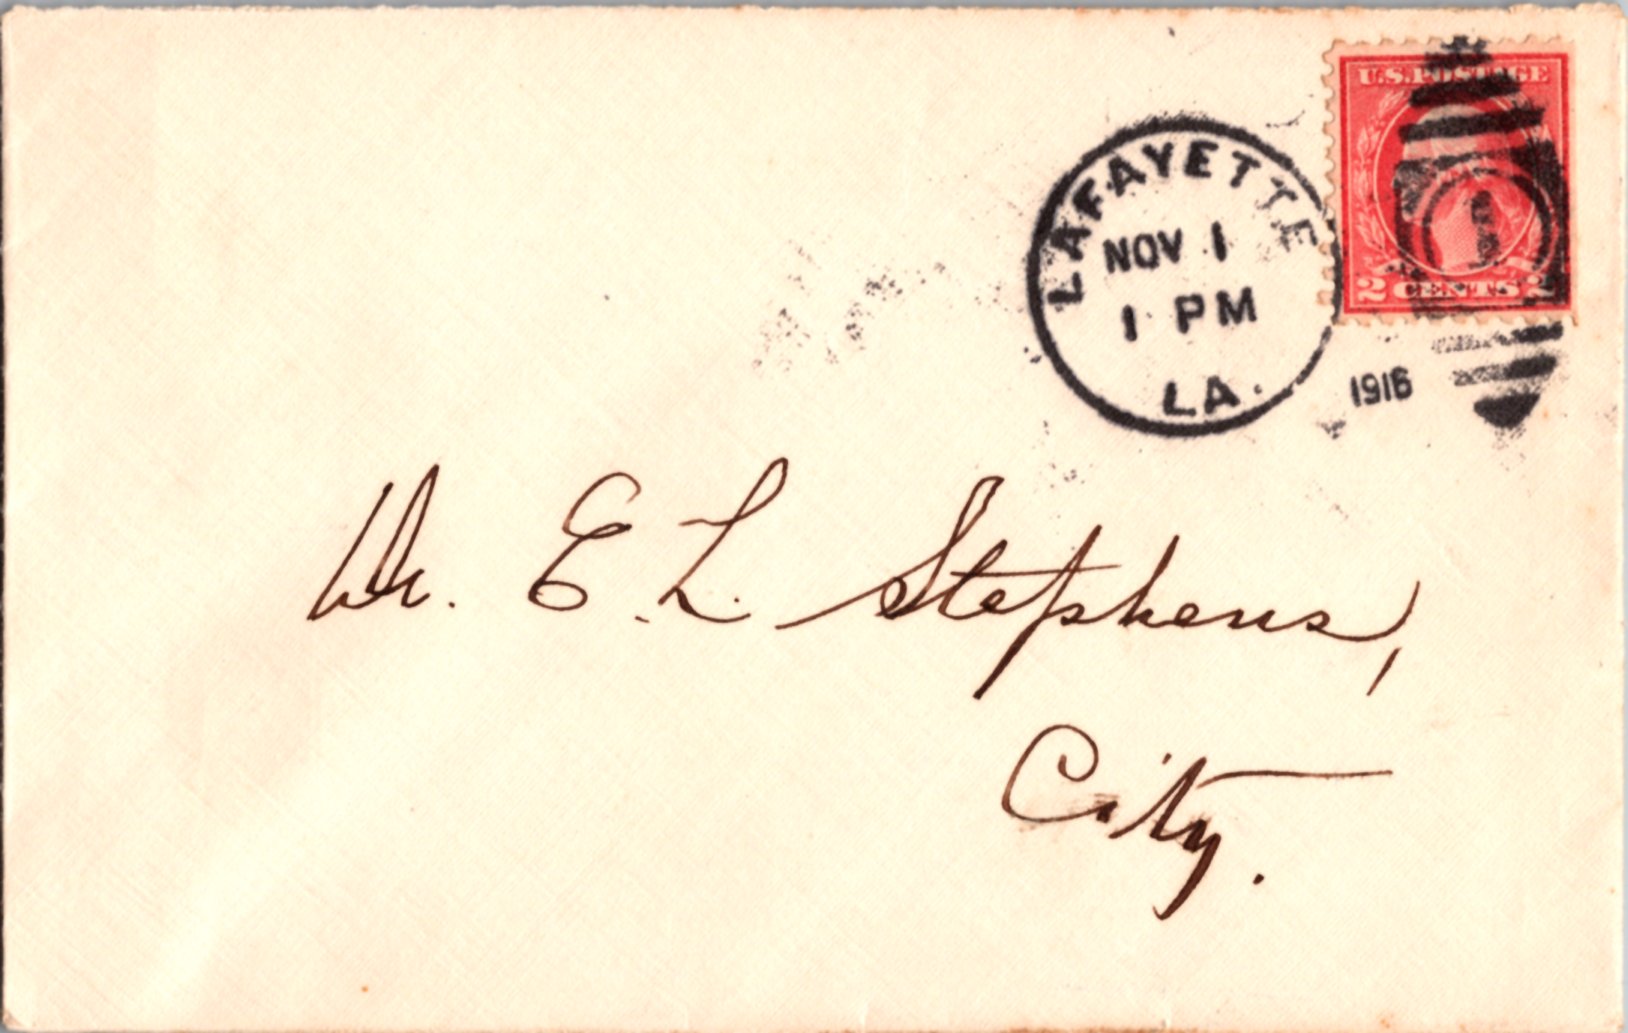 U.S. POSTAGE
2 CENTS 2
LAFAYETTE
NOV 1
1 PM
LA.
1916
1
Dr. E. L. Stephens,
City.